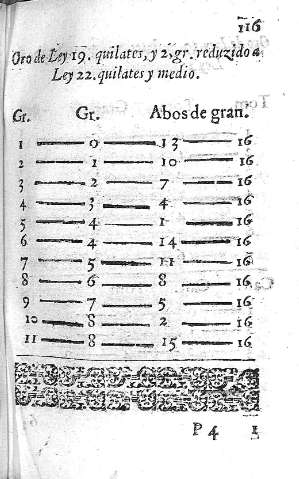 116
Oro de Ley 19. quilates, y 2. gr. reduzido a
Ley 22. quilates y medio.
Gr. Gr. Abos de gran.
1 0 13 16
2 1 10 16
3 2 7 16
4 3 4 16
5 4 1 16
6 4 14 16
7 5 11 16
8 6 8 16
9 7 5 16
10 8 2 16
11 8 15 16
P 4 1